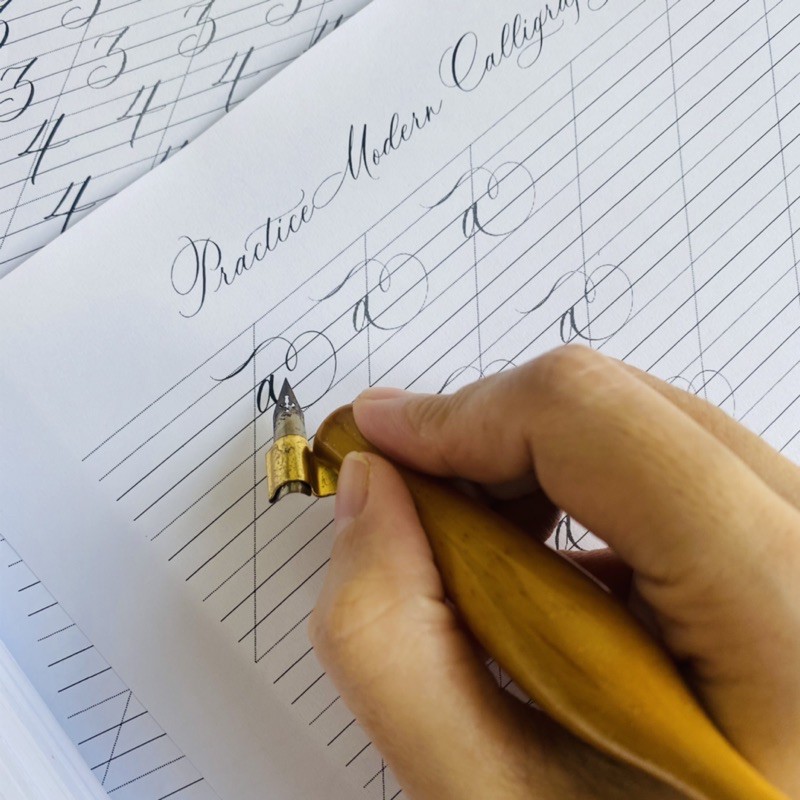 3 3 3 3
3 3 4 4
4
4
Practice Modern Calligraphy
a a a
a
a